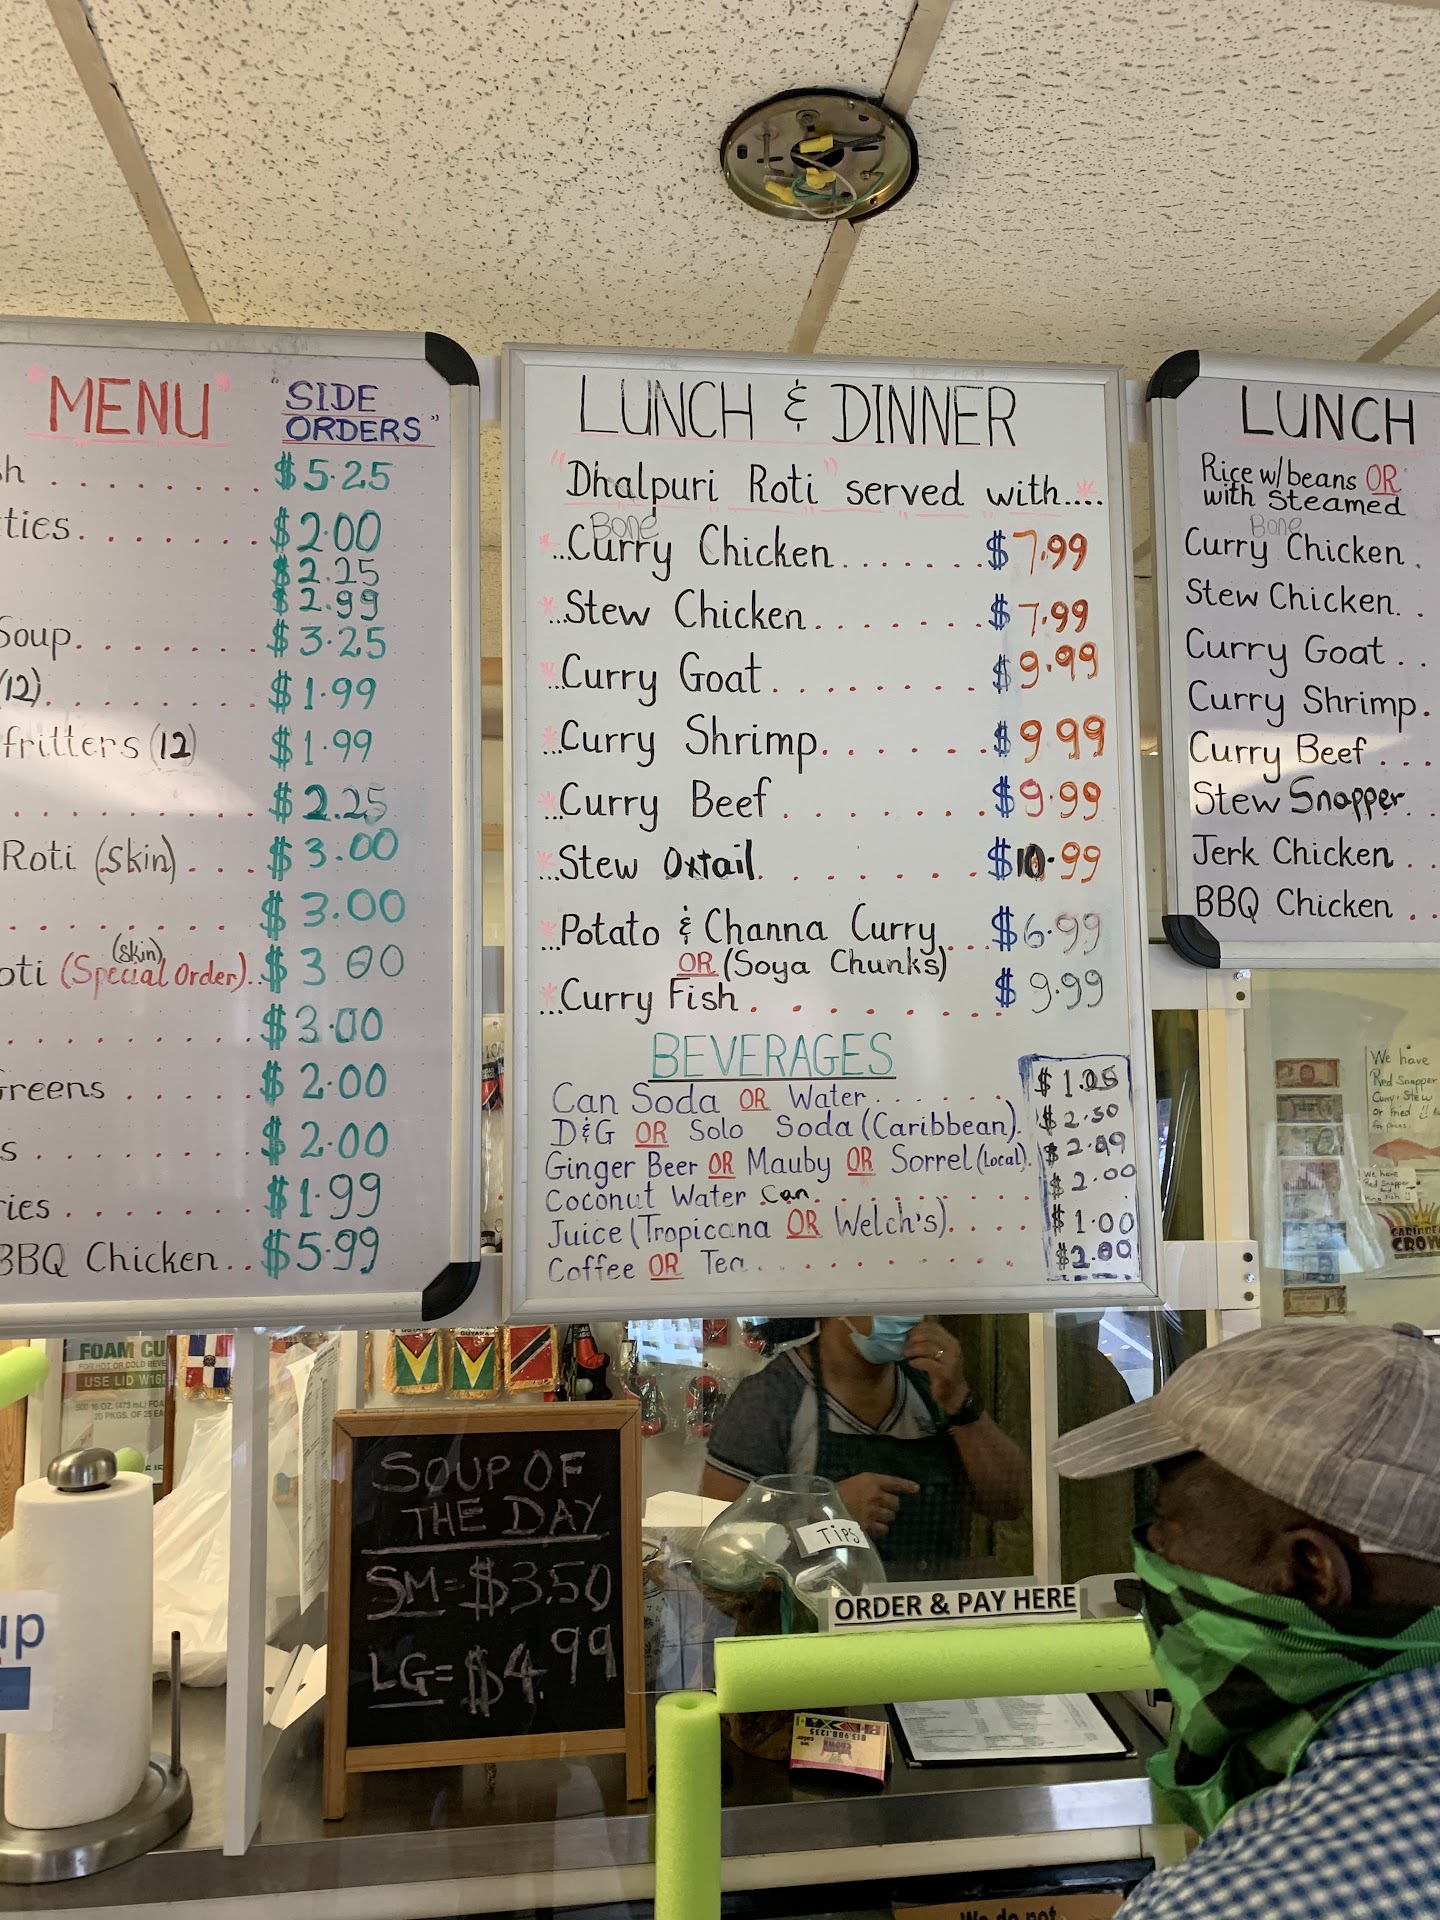 "MENU"
"SIDE
ORDERS"
$5.25
ties....... $2.00
$2.25
$2.99
Soup....... $3.25
(12)....... $1.99
fritters (12) $1.99
$2.25
Roti (Skin)... $3.00
$3.00
(skin)
oti (Special Order).. $3.00
$3.00
Greens..... $2.00
s......... $2.00
ries...... $1.99
BBQ Chicken.. $5.99
LUNCH & DINNER
"Dhalpuri Roti" served with....
Bone
...Curry Chicken....... $7.99
...Stew Chicken....... $7.99
...Curry Goat........ $9.99
...Curry Shrimp...... $9.99
...Curry Beef....... $9.99
...Stew Oxtail....... $10.99
...Potato & Channa Curry... $6.99
OR (Soya Chunks)
...Curry Fish........ $9.99
BEVERAGES
Can Soda OR Water.......
D&G OR Solo Soda (Caribbean). $2.50
Ginger Beer OR Mauby OR Sorrel (Local).
Coconut Water Can........ $2.00
Juice (Tropicana OR Welch's).... $1.00
Coffee OR Tea.......... $2.00
LUNCH
Rice w/beans OR
with Steamed
Bone
Curry Chicken.
Stew Chicken..
Curry Goat..
Curry Shrimp.
Curry Beef...
Stew Snapper..
Jerk Chicken..
BBQ Chicken..
We have
Red Snapper
Curry, Stew
or Fried
We have
Red Snapper
King Fish
CARIBBEAN
CROW
FOAM CU
FOR HOT OR COLD BEVE
USE LID W16F
GUYANA
SOUP OF
THE DAY
SM=$3.50
LG=$4.99
TIPS
ORDER & PAY HERE
up
813.988.1235
We do not